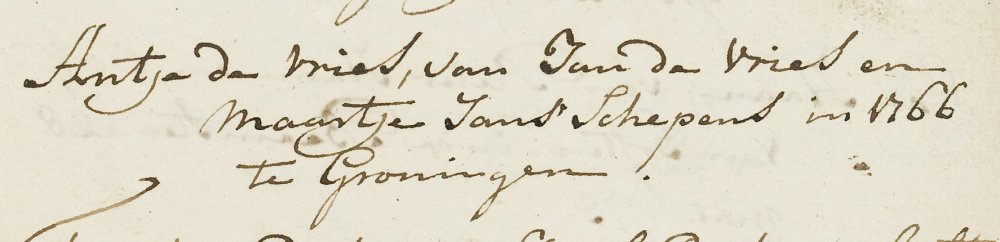 Antje de Vries, van Jan de Vries en
Maartje Jans Schepens in 1766
te Groningen.